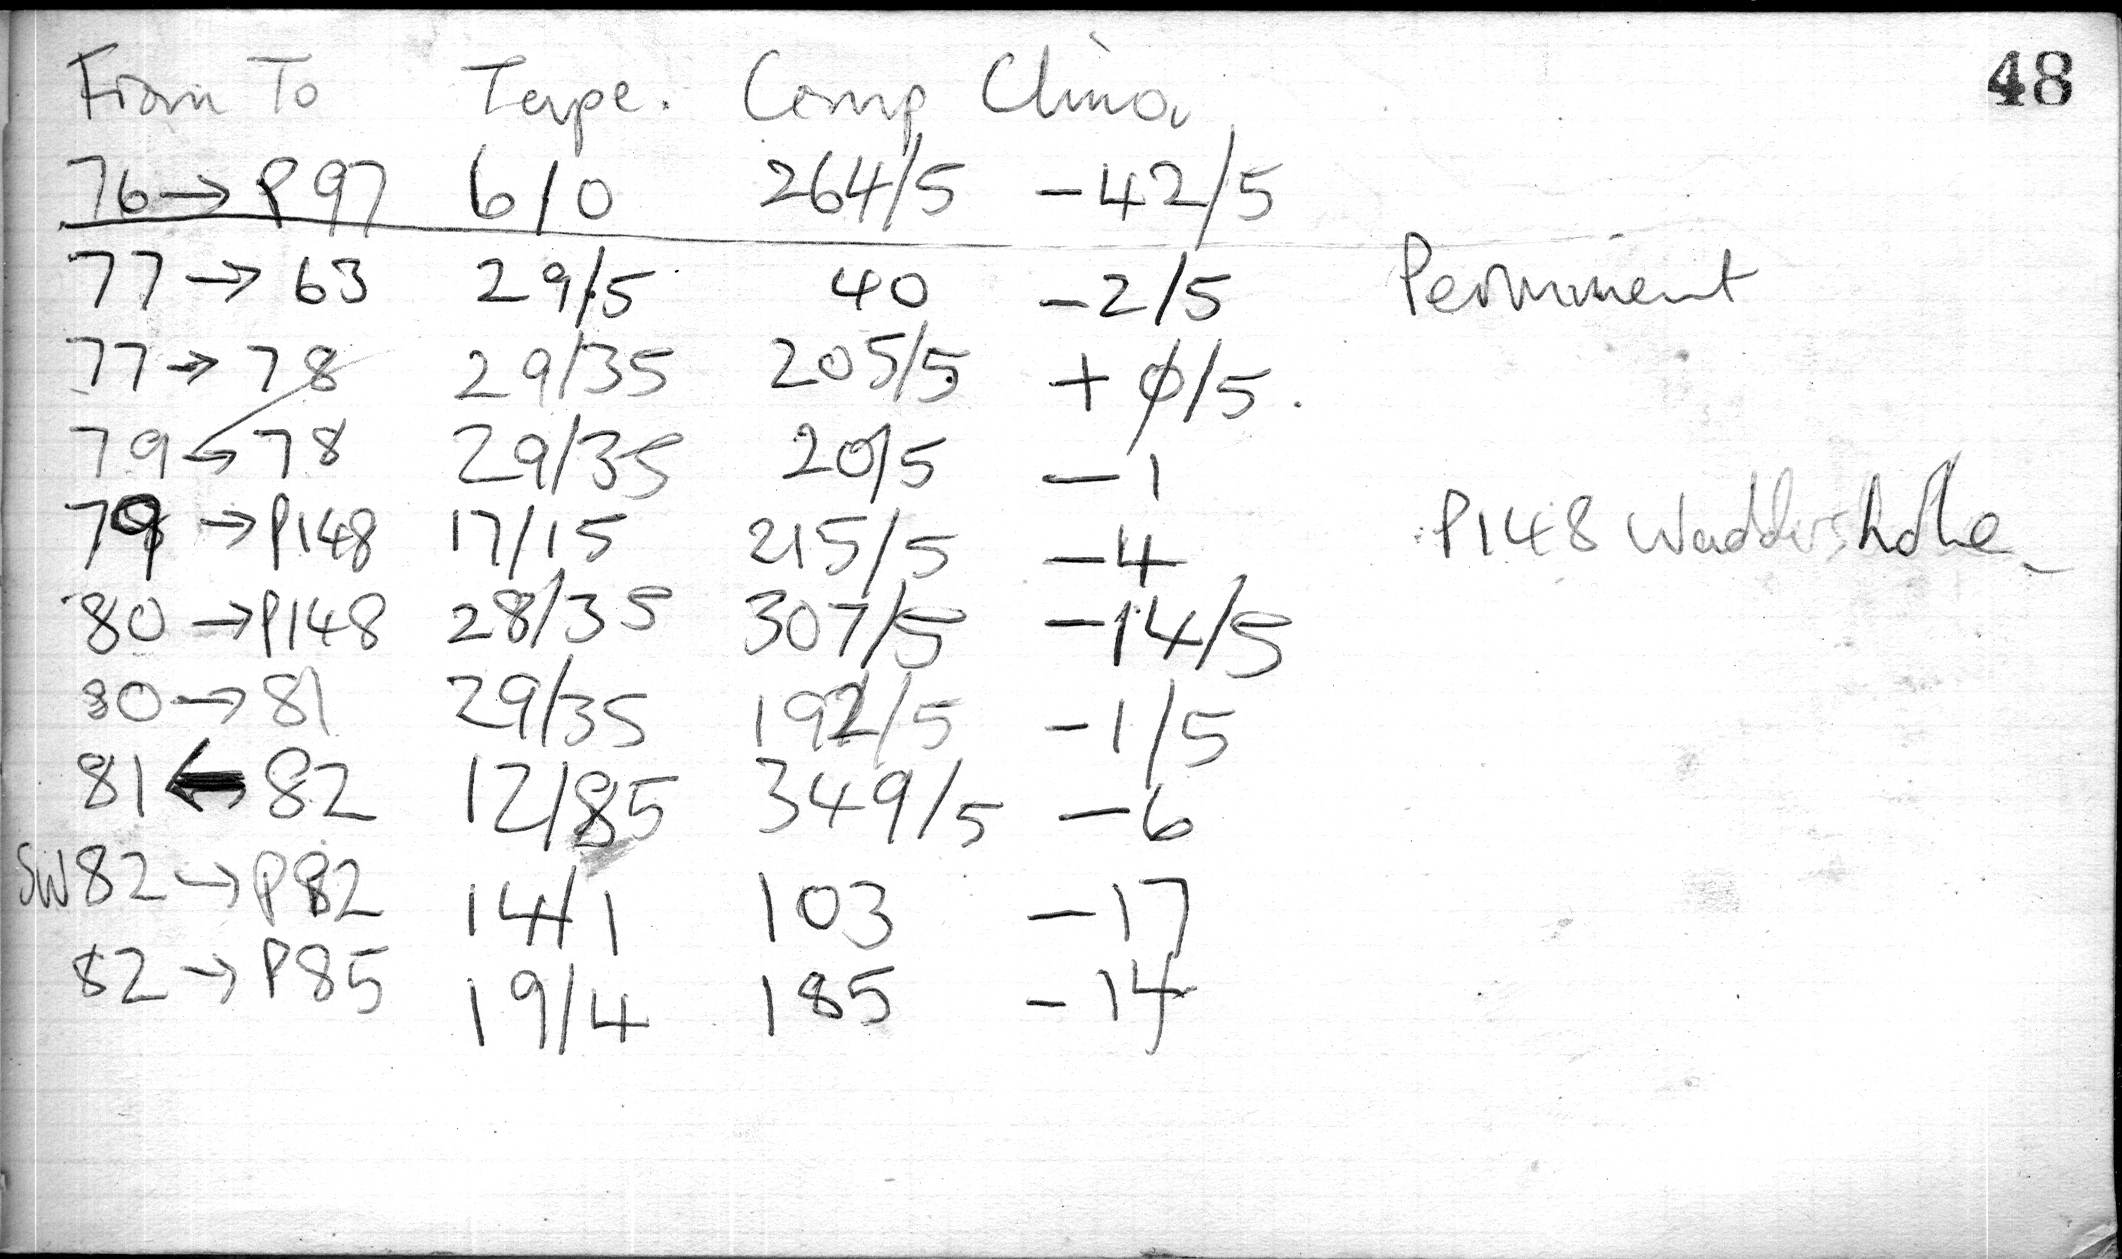 From To Tape. Comp Clino 48
76 → P97 6/0 264/5 -42/5
77 → 63 29/5 40 -2/5
77 → 78 29/35 205/5 + 0/5.
79 ← 78 29/35 20/5 -1
79 → P148 17/15 215/5 -4 P148
80 → P148 28/35 307/5 -14/5
80 → 81 29/35 192/5 -1/5
81 ← 82 12/85 349/5 -6
SW 82 → P82 14/1 103 -17
82 → P85 19/4 185 -14